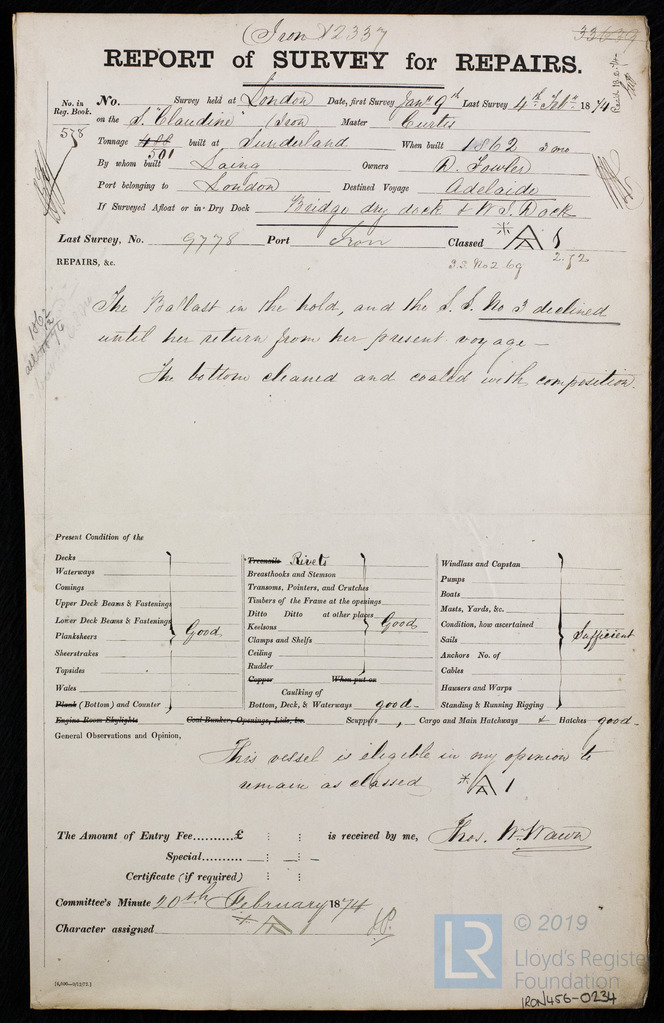 (Iron 12337
33679
REPORT of SURVEY for REPAIRS.
No. in Reg. Book. 578
No. Survey held at London Date, first Survey Jany 9th Last Survey 4th Feby 1874
on the S. "Claudine" Iron Master Curtis
Tonnage 488 501 built at Sunderland When built 1862 3 mo
By whom built Laing Owners D. Fowler
Port belonging to London Destined Voyage Adelaide
If Surveyed Afloat or in Dry Dock Bridge dry dock & W. I. Dock
Last Survey, No. 9778 Port Iron Classed A 1
S.S. No 2 69 2.72
REPAIRS, &c.
The Ballast in the hold, and the S. S. No 3 declined
until her return from her present voyage —
The bottom cleaned and coated with composition.
Present Condition of the
Decks
Waterways
Comings
Upper Deck Beams & Fastenings
Lower Deck Beams & Fastenings
Planksheers Good
Sheerstrakes
Topsides
Wales
Plank (Bottom) and Counter
Engine Room Skylights
Treenails Rivets
Breasthooks and Stemson
Transoms, Pointers, and Crutches
Timbers of the Frame at the openings
Ditto Ditto at other places
Keelsons Good
Clamps and Shelfs
Ceiling
Rudder
Copper When put on
Caulking of
Bottom, Deck, & Waterways good
Coal Bunker, Openings, Lids, &c.
Windlass and Capstan
Pumps
Boats
Masts, Yards, &c.
Condition, how ascertained
Sails Sufficient
Anchors No. of
Cables
Hausers and Warps
Standing & Running Rigging
Scuppers, Cargo and Main Hatchways & Hatches good
General Observations and Opinion,
This vessel is eligible in my opinion to
remain as classed A 1
The Amount of Entry Fee..........£ : : is received by me, Thos. Wm Wawn
Special.......... : :
Certificate (if required) : :
Committee's Minute 20th February 1874
Character assigned A
© 2019
LR Lloyd's Register
Foundation
IRON456-0234